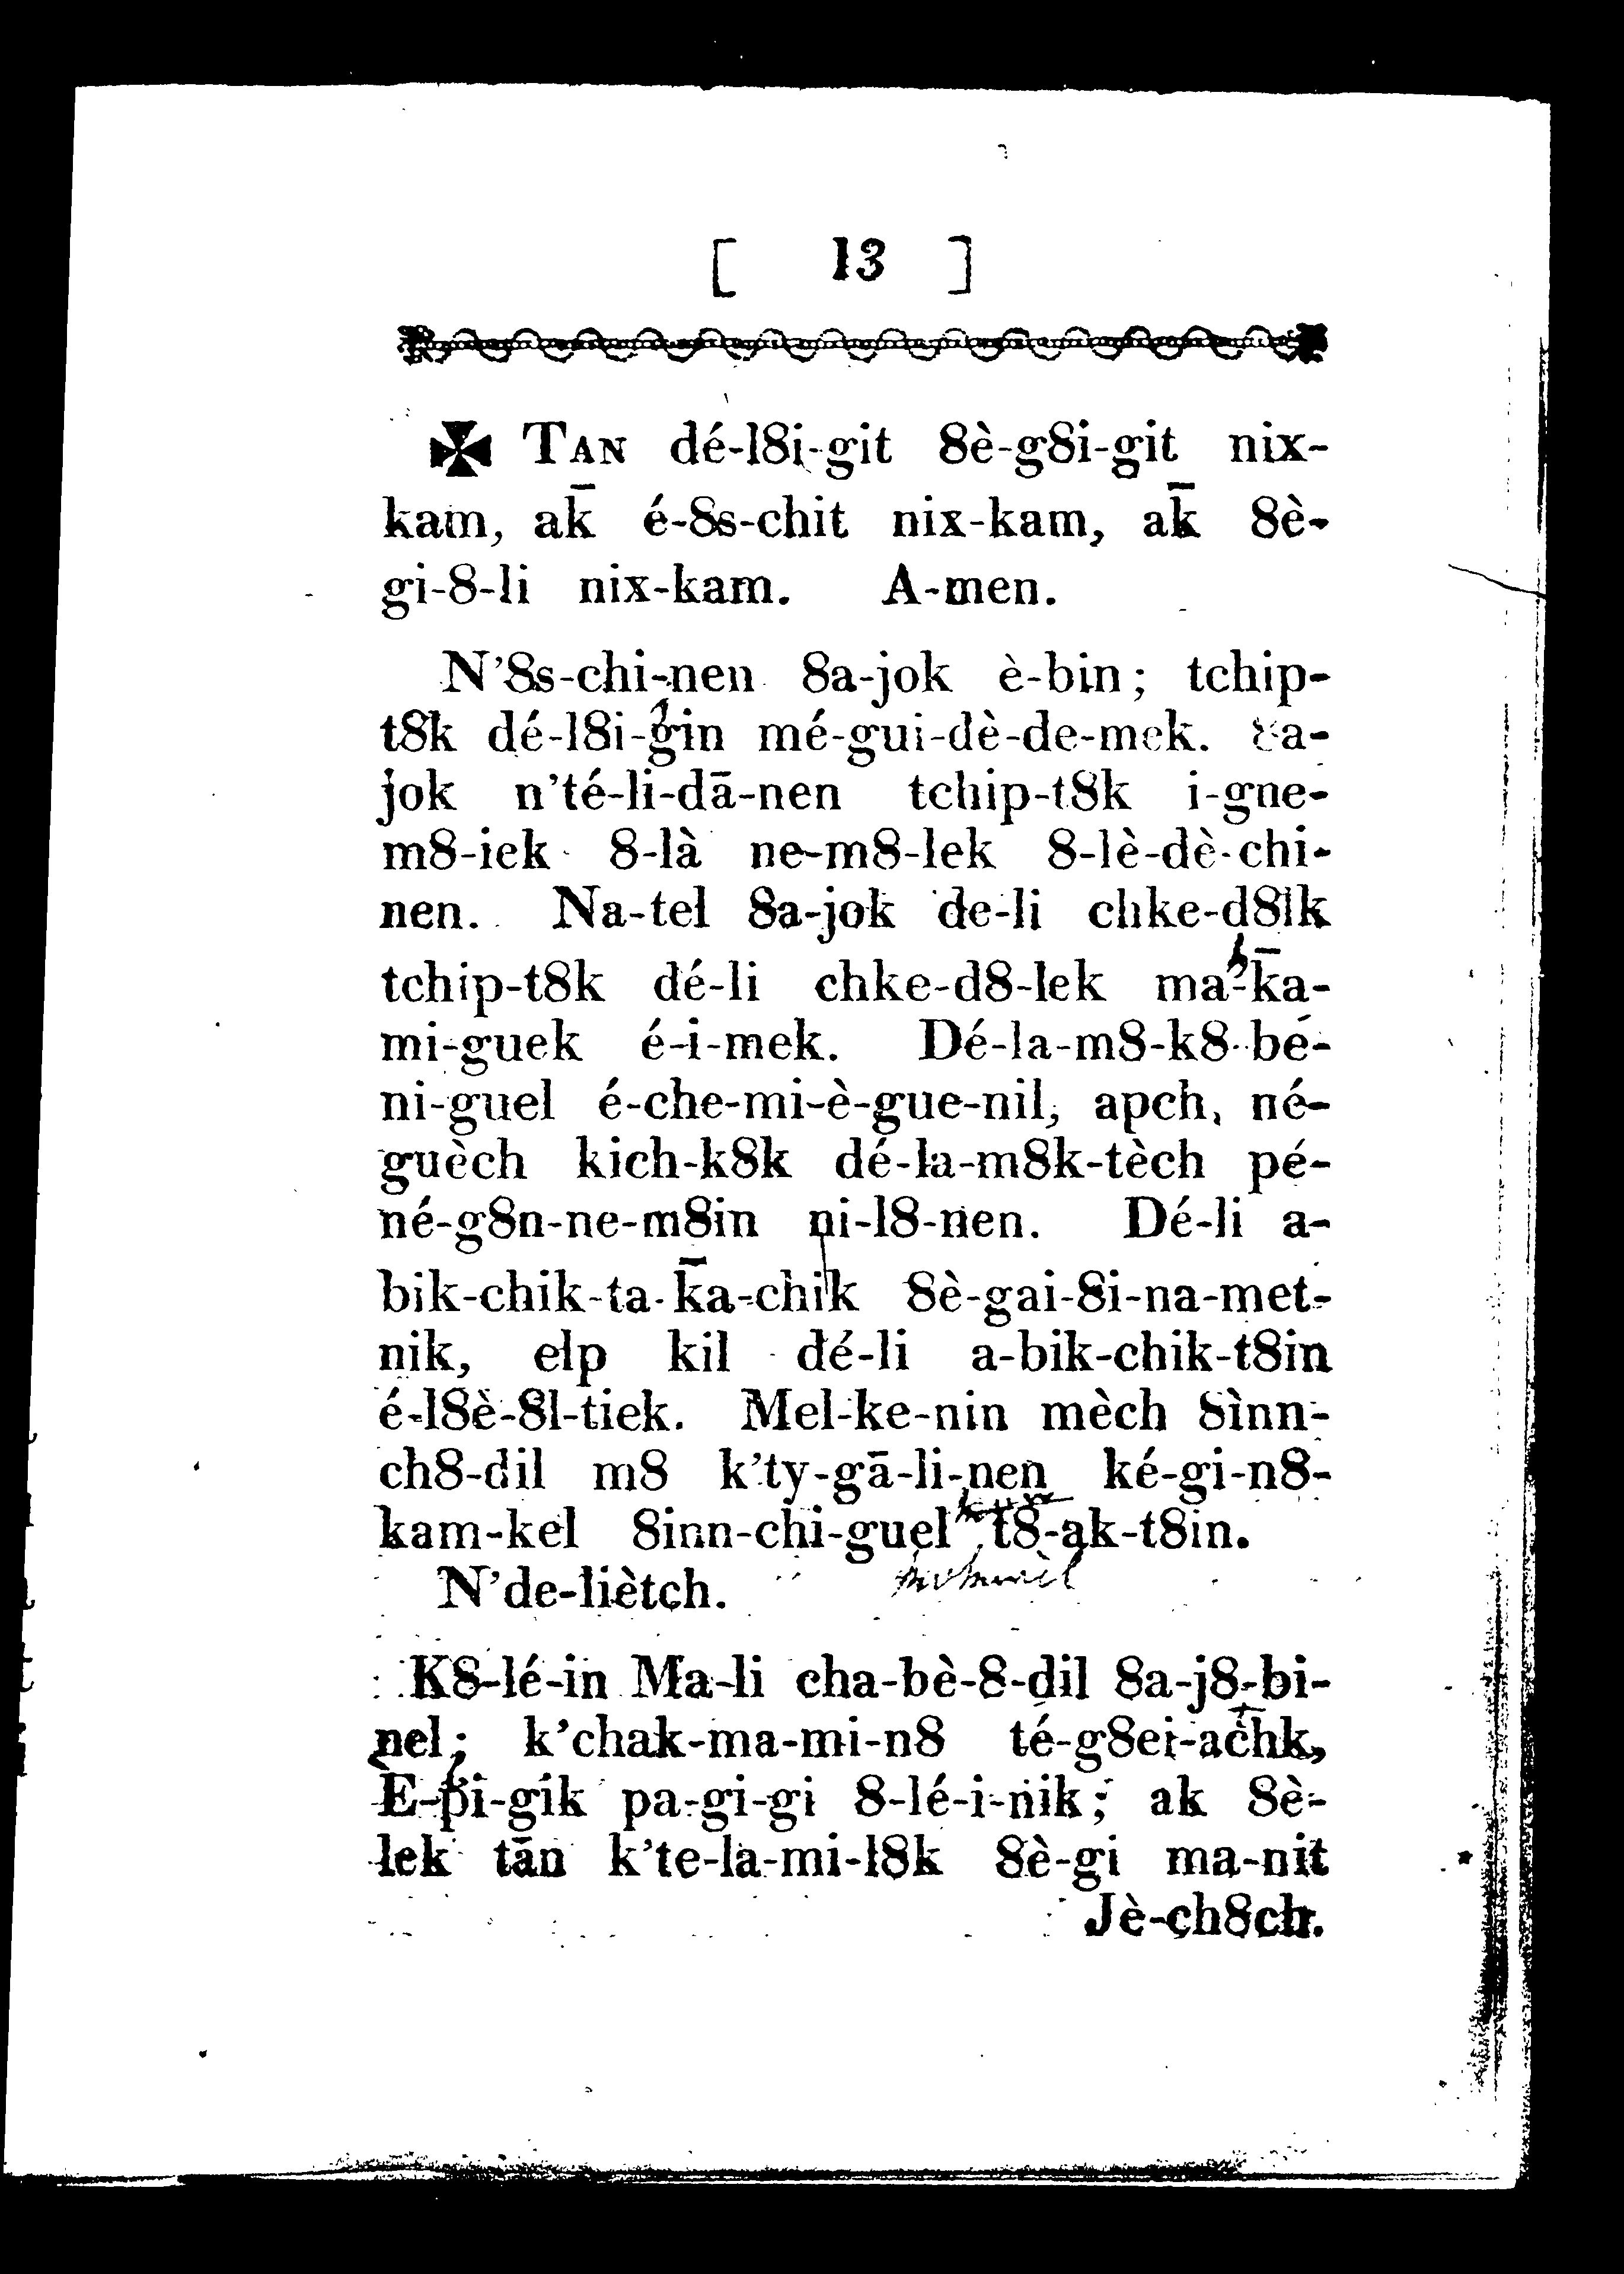 [ 13 ]
✠ TAN dé-l8i-git 8è-g8i-git nix-
kam, ak̄ é-8s-chit nix-kam, ak̄ 8è-
gi-8-li nix-kam. A-men.
N'8s-chi-nen 8a-jok è-bin; tchip-
t8k dé-l8i-gin mé-gui-dè-de-mek. 8a-
jok n'té-li-dā-nen tchip-t8k i-gne-
m8-iek 8-là ne-m8-lek 8-lè-dè-chi-
nen. Na-tel 8a-jok de-li chke-d8lk
tchip-t8k dé-li chke-d8-lek ma-k̄a-
mi-guek é-i-mek. Dé-la-m8-k8-bé-
ni-guel é-che-mi-è-gue-nil, apch, né-
guèch kich-k8k dé-la-m8k-tèch pé-
né-g8n-ne-m8in ni-l8-nen. Dé-li a-
bik-chik-ta-k̄a-chik 8è-gai-8i-na-met-
nik, elp kil dé-li a-bik-chik-t8in
é-l8è-8l-tiek. Mel-ke-nin mèch 8ìnn-
ch8-dil m8 k'ty-gā-li-nen ké-gi-n8-
kam-kel 8inn-chi-guel t8-ak-t8in.
N'de-liètch.
K8-lé-in Ma-li cha-bè-8-dil 8a-j8-bi-
nel; k'chak-ma-mi-n8 té-g8ei-achk,
È-pi-gik pa-gi-gi 8-lé-i-nik; ak 8è-
lek tān k'te-la-mi-l8k 8è-gi ma-nit
Jè-ch8ch.